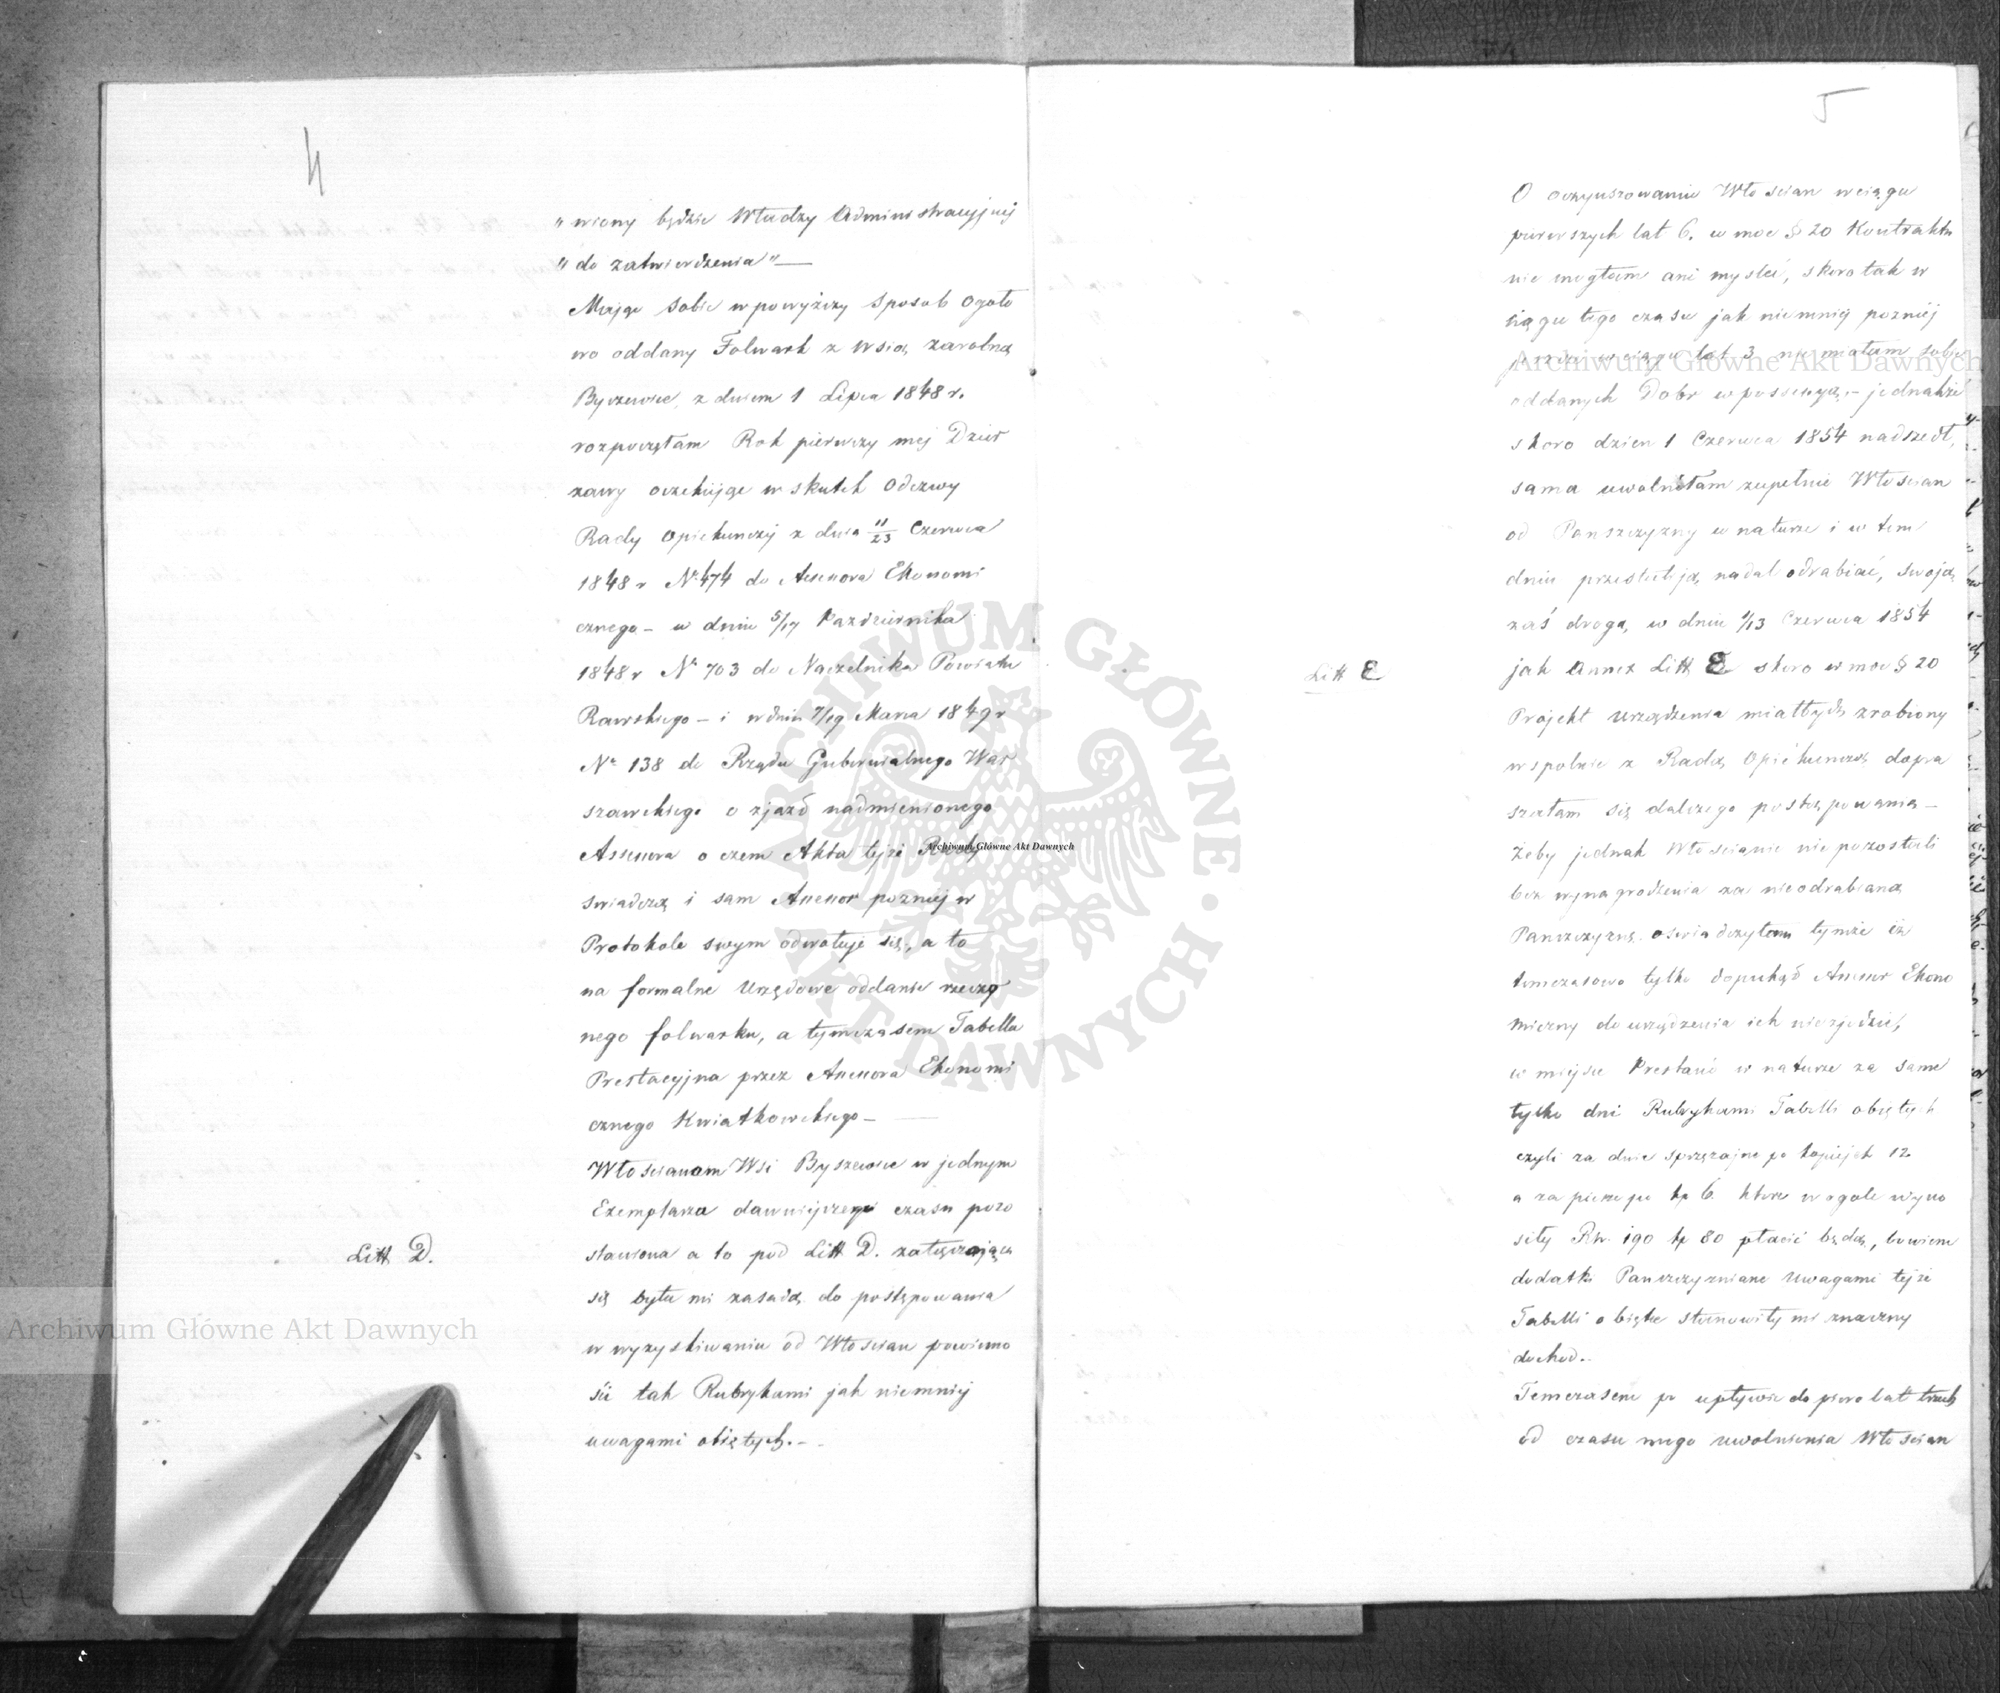 4
„wiony będzie Władzy Administracyjnej
„do zatwierdzenia"—
Mając sobie w powyższy sposób ogoło
wo oddany Folwark z wsią zarobną
Byszewice, z dniem 1 Lipca 1848 r.
rozpoczęłam Rok pierwszy mej Dzier
żawy oczekując w skutek Odezwy
Rady Opiekunczéj z dnia 11/23 Czerwca
1848 r N. 474 do Assessora Ekonomi
cznego – w dniu 5/17 Pazdziernika
1848 r N 703 do Naczelnika Powiatu
Rawskiego – i w dniu 7/19 Marca 1849 r
Nr 138 do Rządu Gubernialnego War
szawskiego o zjazd nadmienionego
Assessora o czem Akta tejże Rady
swiadczą i sam Assessor pozniej w
Protokole swym odwołuje się, a to
na formalne Urzędowe oddanie rzeczo
nego folwarku, a tymczasem Tabella
Prestacyjna przez Assessora Ekonomi
cznego Kwiatkowskiego –
Włoscianom Wsi Byszewice w jednym
Exemplarzu dawniejszego czasu pozo
stawiona a to pod Litt D. załączająca
Litt D.
się była mi zasadą do postępowania
w wyzyskiwaniu od Włoscian powinno
sci tak Rubrykami jak niemniej
uwagami objętych. –
5
O oczynszowaniu Włoscian wciągu
pierwszych lat 6. w moc § 20 Kontraktu
nie mogłam ani mysleć, skoro tak w
ciągu tego czasu jak niemniej pozniej
jeszcze wciągu lat 3 nie miałam sobie
oddanych Dobr w possessyą, – jednakże
skoro dzien 1 Czerwca 1854 nadszedł,
sama uwolniłam zupełnie Włoscian
od Panszczyzny w naturze i w tem
dniu przestali ją nadal odrabiać, swoją
zaś drogą w dniu 1/13 Czerwca 1854
jak Annex Litt E skoro w moc § 20
Litt E
Projekt urządzenia miał być zrobiony
wspolnie z Radą Opiekunczą dopra
szałam się dalszego postępowania –
Żeby jednak Włoscianie nie pozostali
bez wynagrodzenia za nieodrabianą
Panszczyznę oswiadczyłam tymże iż
tymczasowo tylko dopokąd Assessor Ekono
miczny do urządzenia ich niezjedzie,
w miejsce Prestacij w naturze za same
tylko dni Rubrykami Tabelli objętych
czyli za dnie sprzężajne po kopiejek 12
a za piesze po kp 6. które w ogole wyno
siły Rs. 190 kp 80 płacić będą, bowiem
dodatki Panszczyzniane Uwagami tejże
Tabelli objęte stanowiły mi znaczny
dochod. –
Temczasem po upływie dopiero lat trzech
od czasu mego uwolnienia Włoscian
Archiwum Główne Akt Dawnych
Archiwum Główne Akt Dawnych
Archiwum Główne Akt Dawnych
ARCHIWUM GŁÓWNE · AKT DAWNYCH ·